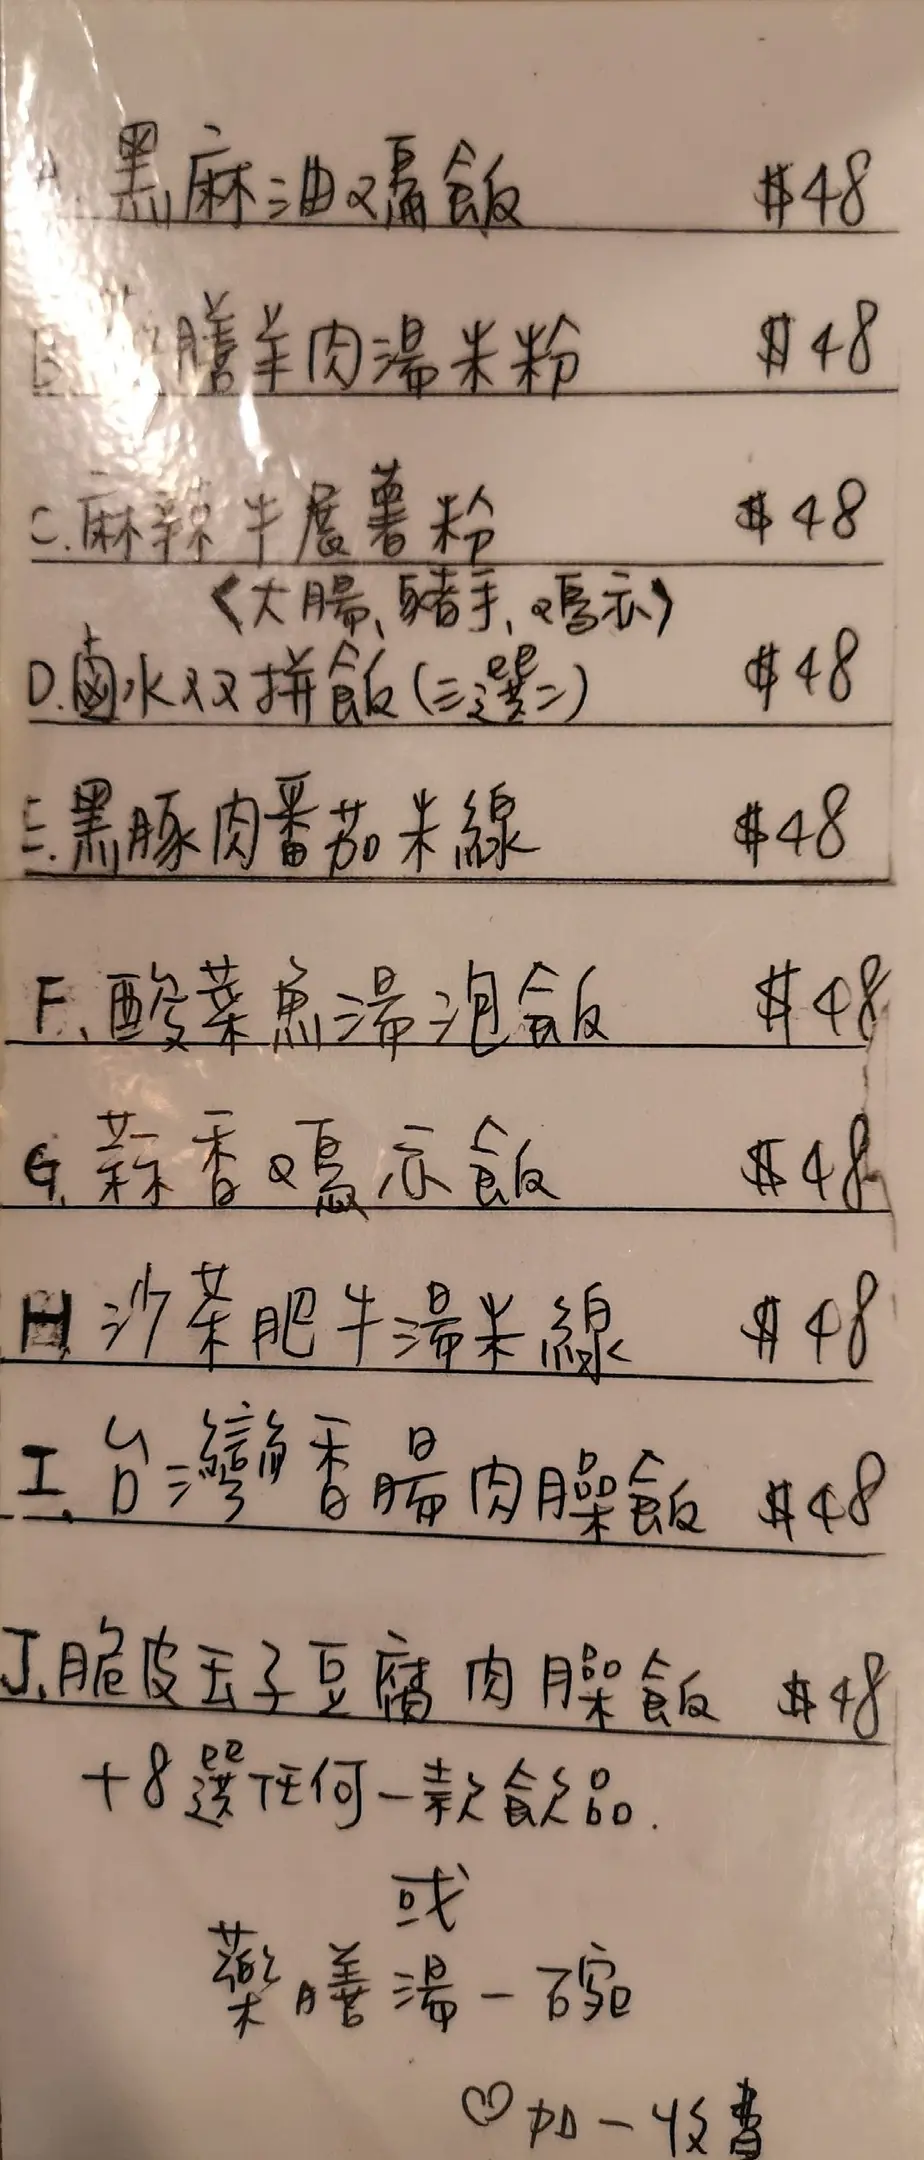 A. 黑麻油又鳮飯 $48
B. 膳羊肉湯米粉 $48
C. 麻辣牛展薯粉 $48
《大腸、豬手、鳮亦》
D. 鹵水双拼飯(三選二) $48
E. 黑豚肉番茄米線 $48
F. 酸菜魚湯泡飯 $48
G. 蒜香鳮亦飯 $48
H. 沙茶肥牛湯米線 $48
I. 台灣香腸肉臊飯 $48
J. 脆皮玉子豆腐肉臊飯 $48
+8選任何一款飲品.
或
藥膳湯一碗
♡加一收費